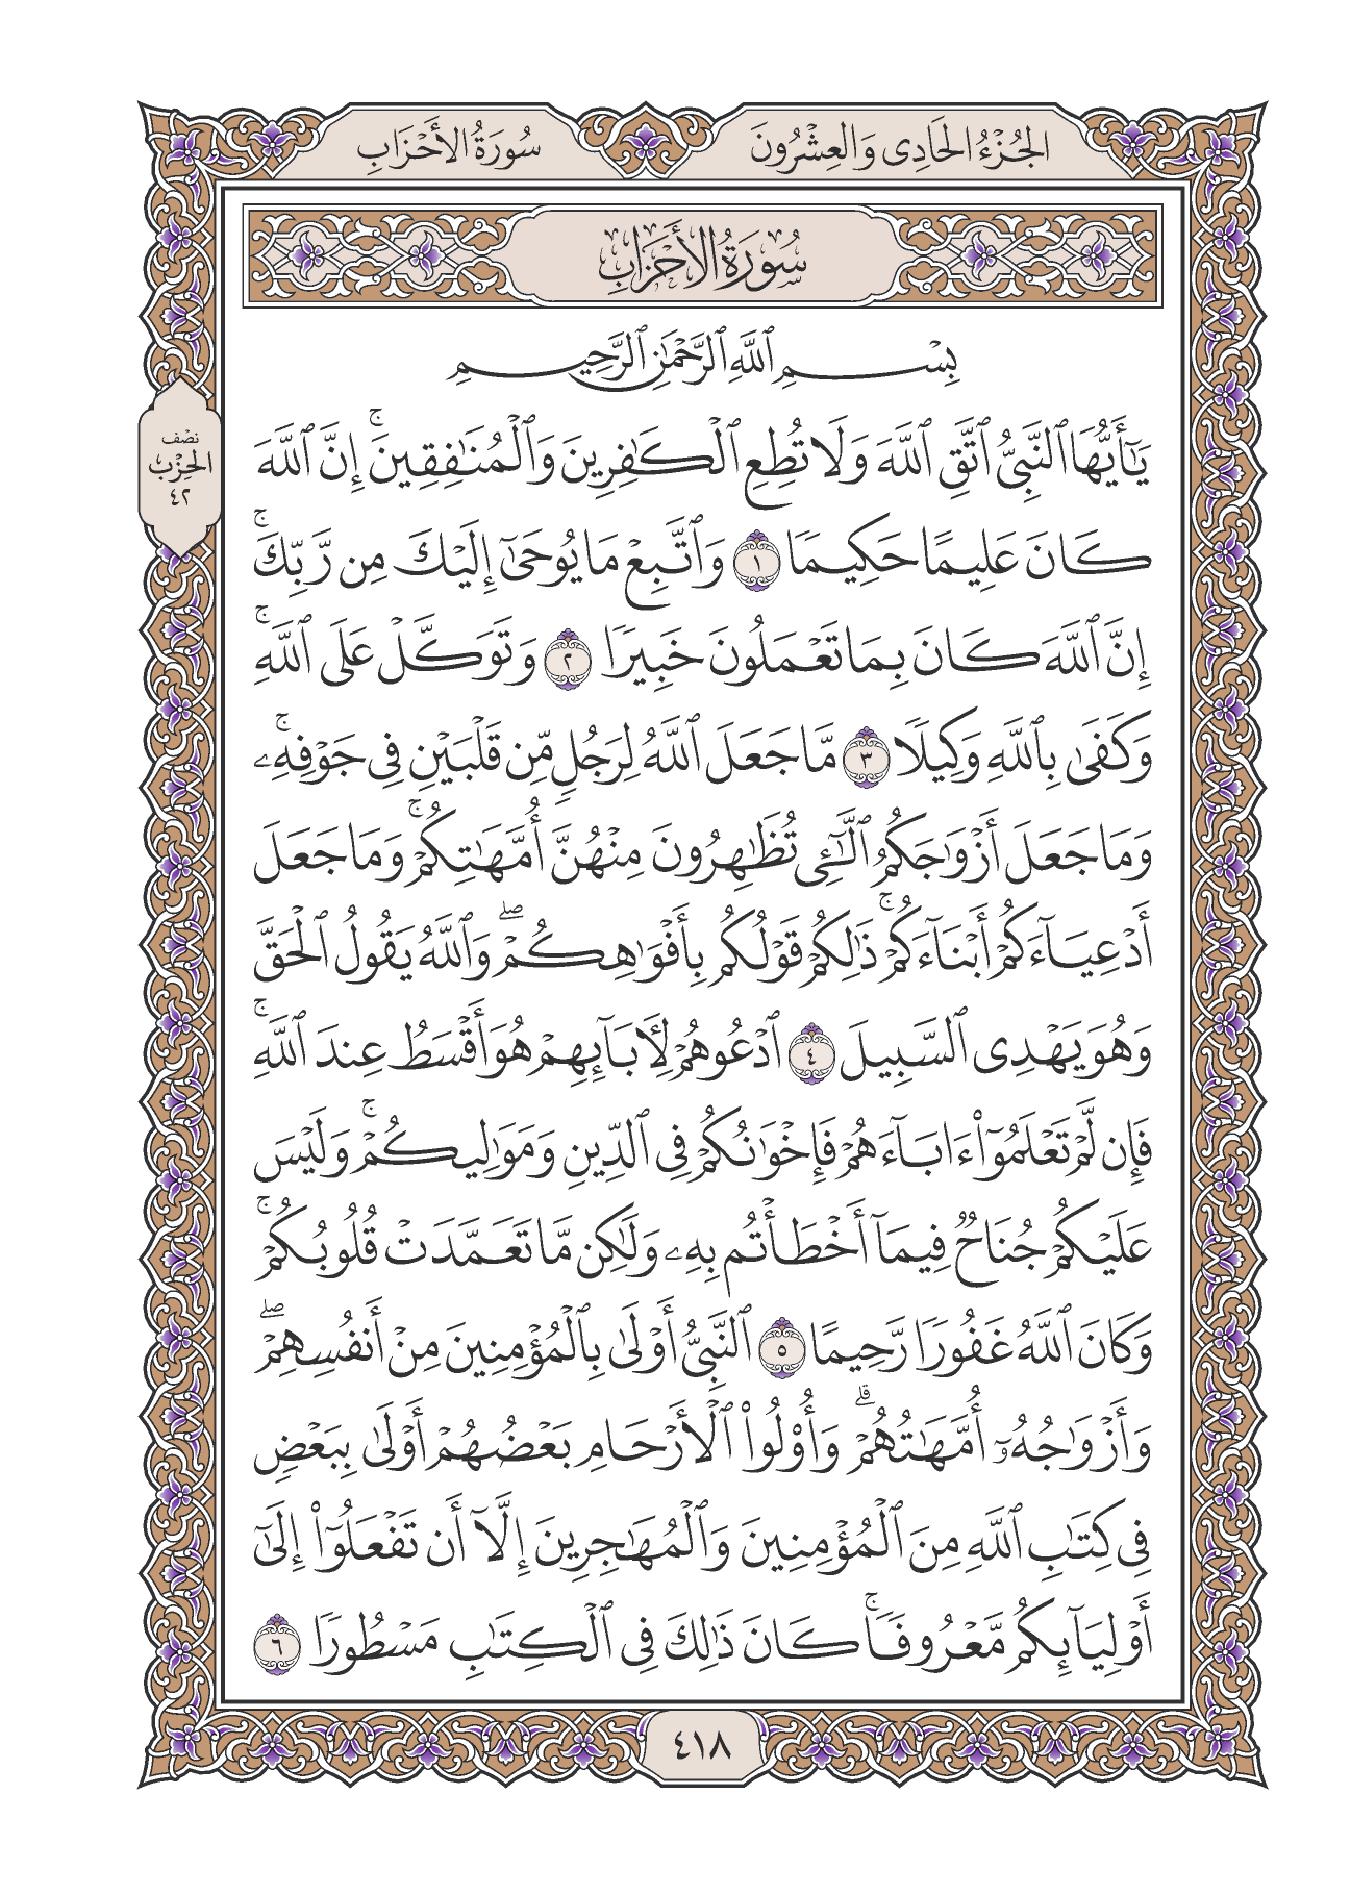 الجُزْءُ الحَادِى وَالعِشْرُونَ
سُورَةُ الأَحْزَابِ
سُورَةُ الأَحْزَابِ
بِسْمِ ٱللَّهِ ٱلرَّحْمَٰنِ ٱلرَّحِيمِ
نصْف
الحِزْب
٤٢
يَٰٓأَيُّهَا ٱلنَّبِيُّ ٱتَّقِ ٱللَّهَ وَلَا تُطِعِ ٱلْكَٰفِرِينَ وَٱلْمُنَٰفِقِينَۚ إِنَّ ٱللَّهَ
كَانَ عَلِيمًا حَكِيمًا ١ وَٱتَّبِعْ مَا يُوحَىٰٓ إِلَيْكَ مِن رَّبِّكَۚ
إِنَّ ٱللَّهَ كَانَ بِمَا تَعْمَلُونَ خَبِيرًا ٢ وَتَوَكَّلْ عَلَى ٱللَّهِۚ
وَكَفَىٰ بِٱللَّهِ وَكِيلًا ٣ مَّا جَعَلَ ٱللَّهُ لِرَجُلٍ مِّن قَلْبَيْنِ فِى جَوْفِهِۦۚ
وَمَا جَعَلَ أَزْوَٰجَكُمُ ٱلَّٰٓـِٔى تُظَٰهِرُونَ مِنْهُنَّ أُمَّهَٰتِكُمْۚ وَمَا جَعَلَ
أَدْعِيَآءَكُمْ أَبْنَآءَكُمْۚ ذَٰلِكُمْ قَوْلُكُم بِأَفْوَٰهِكُمْۖ وَٱللَّهُ يَقُولُ ٱلْحَقَّ
وَهُوَ يَهْدِى ٱلسَّبِيلَ ٤ ٱدْعُوهُمْ لِأٓبَآئِهِمْ هُوَ أَقْسَطُ عِندَ ٱللَّهِۚ
فَإِن لَّمْ تَعْلَمُوٓا۟ ءَابَآءَهُمْ فَإِخْوَٰنُكُمْ فِى ٱلدِّينِ وَمَوَٰلِيكُمْۚ وَلَيْسَ
عَلَيْكُمْ جُنَاحٌ فِيمَآ أَخْطَأْتُم بِهِۦ وَلَٰكِن مَّا تَعَمَّدَتْ قُلُوبُكُمْۚ
وَكَانَ ٱللَّهُ غَفُورًا رَّحِيمًا ٥ ٱلنَّبِىُّ أَوْلَىٰ بِٱلْمُؤْمِنِينَ مِنْ أَنفُسِهِمْۖ
وَأَزْوَٰجُهُۥٓ أُمَّهَٰتُهُمْۗ وَأُو۟لُوا۟ ٱلْأَرْحَامِ بَعْضُهُمْ أَوْلَىٰ بِبَعْضٍ
فِى كِتَٰبِ ٱللَّهِ مِنَ ٱلْمُؤْمِنِينَ وَٱلْمُهَٰجِرِينَ إِلَّآ أَن تَفْعَلُوٓا۟ إِلَىٰٓ
أَوْلِيَآئِكُم مَّعْرُوفًاۚ كَانَ ذَٰلِكَ فِى ٱلْكِتَٰبِ مَسْطُورًا ٦
٤١٨